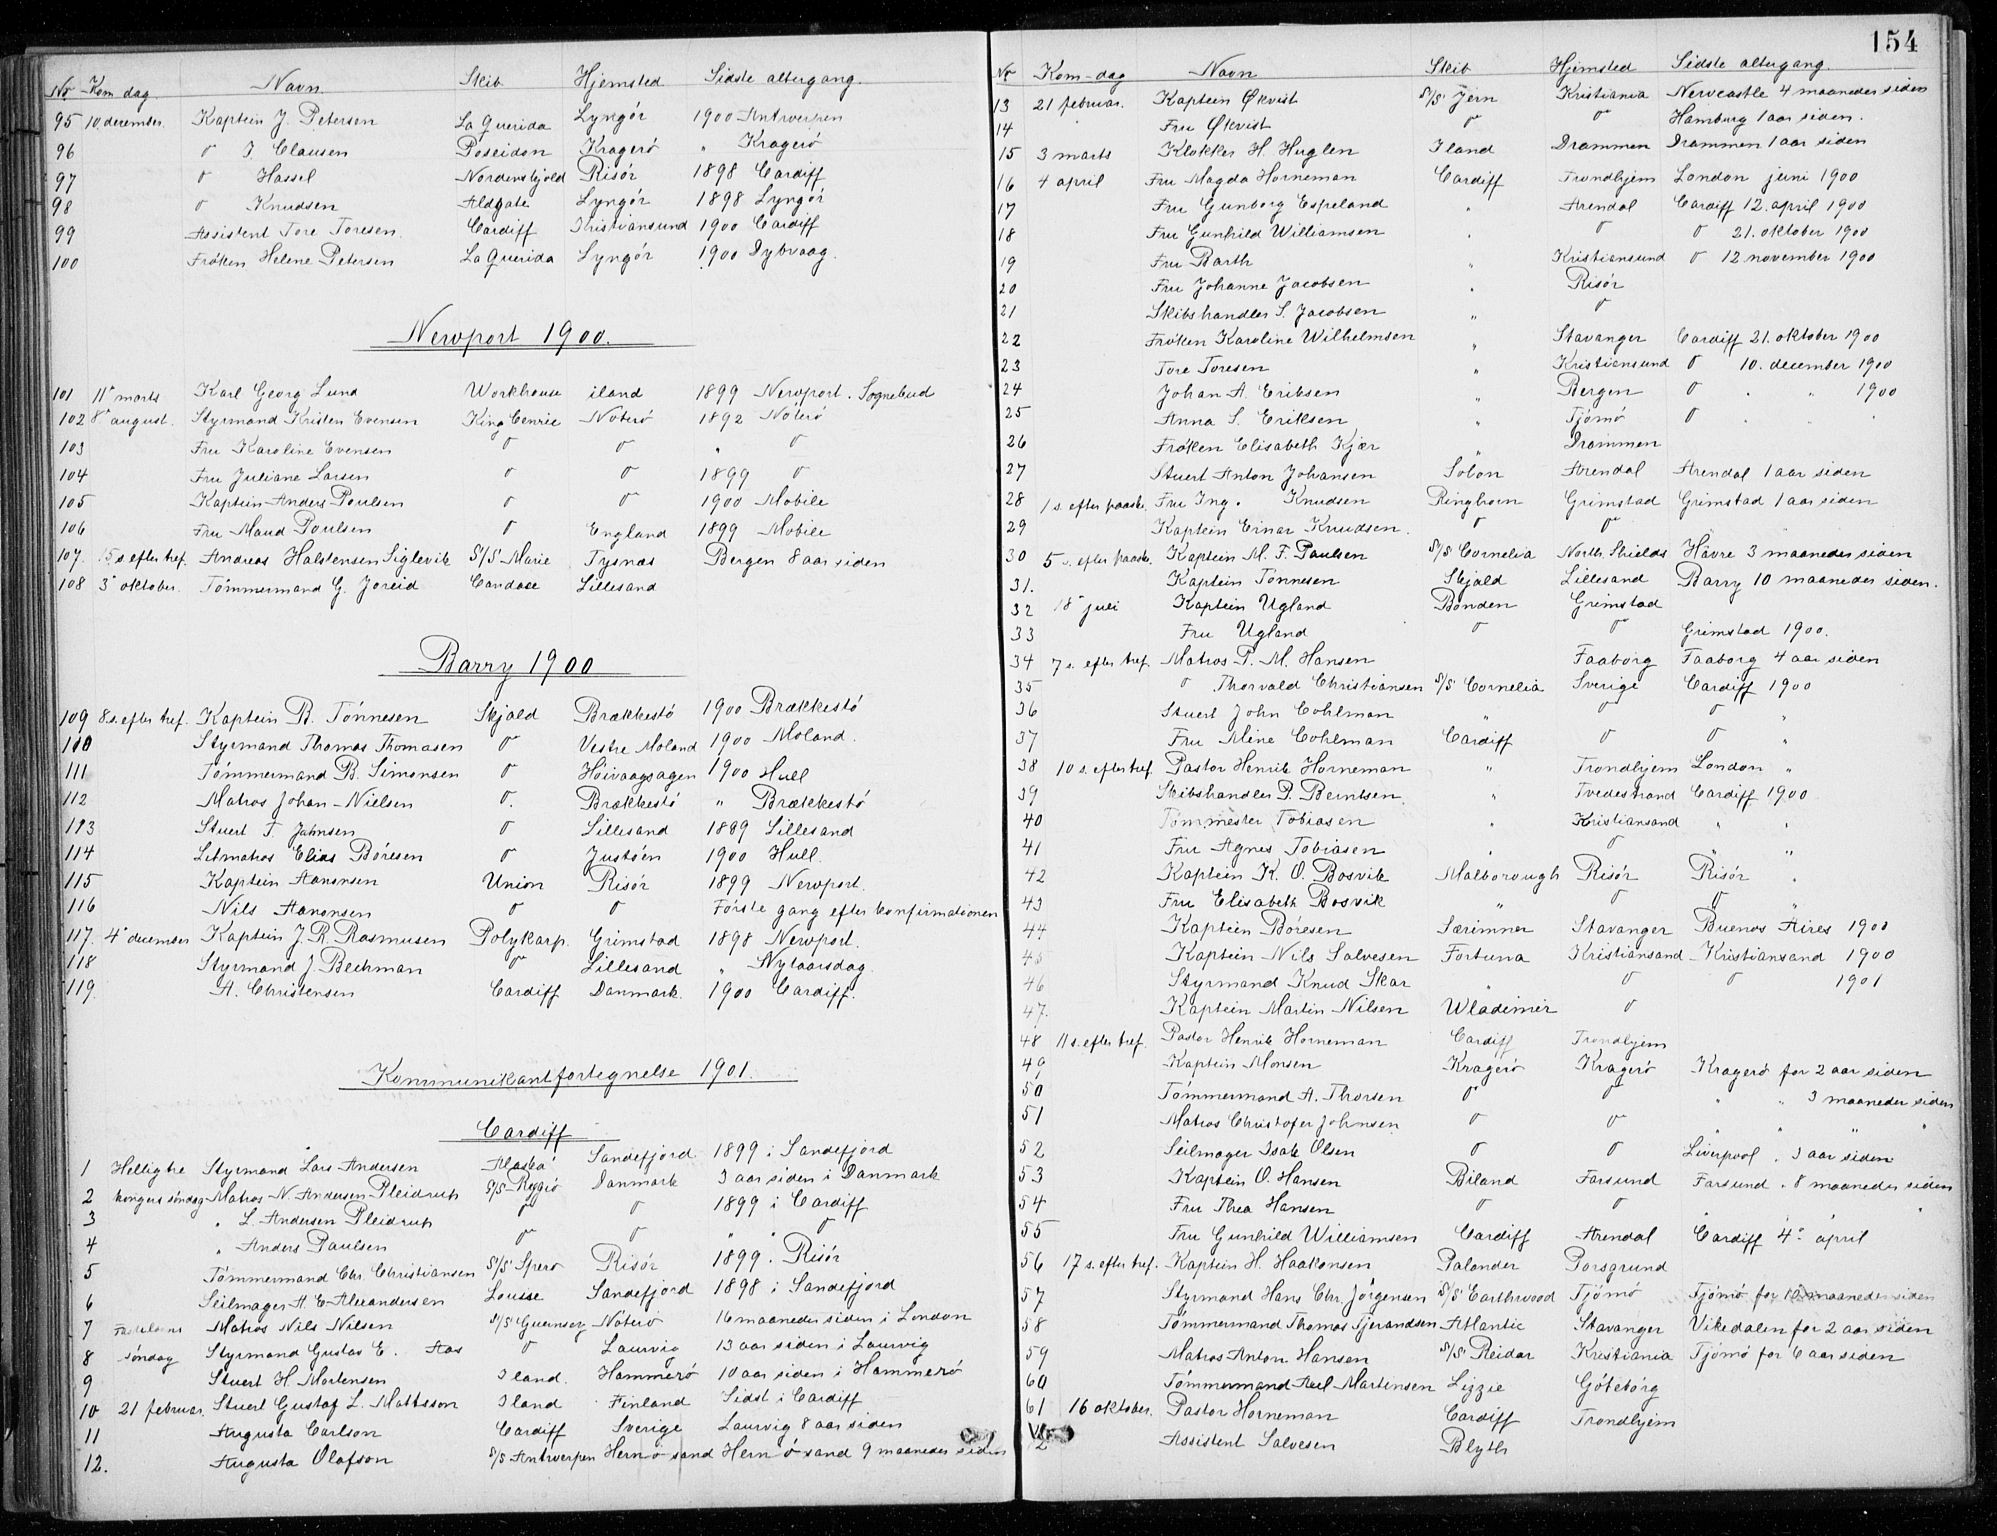 No Kom dag. Navn. Skib Hjemsted Sidste altergang.
95 10 december. Kaptein J. Petersen La Querida Lyngör 1900 Antwerpen
96 " J. Clausen Poseidon Kragerö " Kragerö
97 " Hassel Nordenskjold Risör 1898 Cardiff
98 " Knudsen Aldgate Lyngör 1898 Lyngör
99 Assistent Tore Toresen. Cardiff Kristiansund 1900 Cardiff
100 Fröken Helene Petersen La Querida Lyngör 1900 Dybvaag.
Newport 1900.
101 11' marts Karl Georg Lund Workhouse iland 1899 Newport. Sognebud
102 8' august. Styrmand Kristen Evensen King Cenric Nöterö 1892 Nöterö
103 Fru Karoline Evensen " " " "
104 Fru Juliane Larsen " " 1899 "
105 Kaptein Anders Poulsen " " 1900 Mobile
106 Fru Maud Poulsen " England 1899 Mobile
107. 15 s efter tref. Andreas Halstensen Siglevik S/S Marie Tysnæs Bergen 8 aar siden
108 3' oktober. Tömmermand G. Joreid Candace Lillesand
Barry 1900
109 8.s. efter tref. Kaptein B. Tönnesen Skjold Brækkestö 1900 Brækkestö
110 Styrmand Thomas Thomasen " Vestre Moland 1900 Moland.
111 Tömmermand B. Simonsen " Höivaagsagen 1900 Hull
112 Matros Johan Nielsen " Brækkestö " Brækkestö
113 Stuert T. Jahnsen " Lillesand 1899 Lillesand
114 Letmatros Elias Böresen " Justöen 1900 Hull.
115 Kaptein Aanonsen Union Risör 1899 Newport.
116 Nils Aanonsen " " Förste gang efter Confirmationen
117. 4' december Kaptein J. R. Rasmusen Polykarp. Grimstad 1898 Newport.
118 Styrmand J. Beckman " Lillesand " Nytaarsdag.
119. A. Christensen Cardiff Danmark. 1900 Cardiff.
Kommunikantfortegnelse 1901.
Cardiff
1 Hellig tre Styrmand Lars Andersen Alaska Sandefjord 1899 i Sandefjord
2 kongers söndag Matros N. Andersen Pleidrup S/S Reggio Danmark 3 aar siden i Danmark
3 " L. Andersen Pleidrup " " 1899 i Cardiff
4 " Anders Paulsen " " " " "
5 Tömmermand Chr. Christiansen S/S Spero Risör 1899 i Risör
6 Seilmager A. E. Alexandersen Lousse Sandefjord 1898 i Sandefjord
7 Fastelavns Matros Nils Nilsen S/S Guernsey Nöterö 16 maaneder siden i London
8 söndag Styrmand Gustav E. Aas " Laurvig 13 aar siden i Laurvig
9 Stuert H. Mortensen Iland. Hammerö 10 aar siden i Hammerö
10 21 februar. Stuert Gustaf L. Mattsson Iland Finland Sidst i Cardiff
11 Augusta Carlson Cardiff Sverige Laurvig 8 aar siden
12. Augusta Olafson S/S Antwerpen Hernösand Hernösand 9 maaneder siden
154
No Kom-dag Navn Skib Hjemsted Sidste altergang.
13 21 februar. Kaptein Økvist S/S Jern Kristiania Newcastle 4 maaneder siden
14 Fru Økvist " " Hamburg 1 aar siden.
15 3 marts Klokker H. Huglen Iland Drammen Drammen 1 aar siden
16 4 april Fru Magda Horneman Cardiff Trondhjem London juni 1900
17 Fru Gunborg Espeland " Arendal Cardiff 12. april 1900
18 Fru Gunhild Williamsen " " " 21. oktober 1900
19 Fru Barth " Kristiansund " 12 november 1900
20 Fru Johanne Jacobsen " Risör
21 Skibshandler S. Jacobsen " "
22 Fröken Karoline Wilhelmsen " Stavanger Cardiff 21. oktober 1900
23 Tore Toresen " Kristiansund " 10. december 1900
24 Johan A. Eriksen " Bergen " " " 1900
25 Anna S. Eriksen " Tjömö " " " "
26 Fröken Elisabeth Kjær " Drammen
27 Stuert Anton Johansen Solon Arendal Arendal 1 aar siden
28 1 s. efter paaske. Fru Ing. Knudsen Ringhorn Grimstad Grimstad 1 aar siden
29 Kaptein Einar Knudsen. " "
30 5 s. efter paaske. Kaptein M. F. Paulsen S/S Cornelia North Shields Havre 3 maaneder siden
31. Kaptein Tönnesen Skjold Lillesand Barry 10 maaneder siden.
32 18' juli Kaptein Ugland Bonden Grimstad
33 Fru Ugland " " Grimstad 1900.
34 7 s. efter tref. Matros P. M. Hansen Faaborg Faaborg 4 aar siden
35 " Thorvald Christiansen S/S Cornelia Sverige Cardiff 1900
36 Stuert John Cohlman " " " "
37 Fru Mine Cohlman Cardiff " " "
38 10 s. efter tref. Pastor Henrik Horneman " Trondhjem London "
39 Skibshandler P. Berntsen. " Tvedestrand Cardiff 1900
40 Tömmester Tobiasen " Kristiansand " "
41 Fru Agnes Tobiasen " " " "
42 Kaptein K. O. Bosvik Malborough Risör Risör "
43 Fru Elisabeth Bosvik " " " "
44 Kaptein Böresen Særimner Stavanger Buenos Aires 1900
45 Kaptein Nils Salvesen Fortuna Kristiansand Kristiansand 1900
46 Styrmand Knud Skar " " " 1901
47. Kaptein Martin Nilsen Wladimir "
48 11 s. efter tref. Pastor Henrik Horneman Cardiff Trondhjem
49 Kaptein Monsen Kragerö Kragerö Kragerö for 2 aar siden
50 Tömmermand A. Thorsen " " " " 3 maaneder siden
51 Matros Christofer Johnsen " " " " " "
52 Seilmager Isak Olsen " " Liverpool " 3 aar siden
53 Kaptein O. Hansen Biland Farsund Farsund " 8 maaneder siden
54 Fru Thea Hansen " " " " "
55 Fru Gunhild Williamsen Cardiff Arendal Cardiff 4' april
56 17 s. efter tref. Kaptein H. Haakonsen Palander Porsgrund
57 Styrmand Hans Chr. Jörgensen S/S Earthwood Tjömö Tjömö for 10 maaneder siden
58 Tömmermand Thomas Tjerandsen Atlantic Stavanger Vikedalen for 2 aar siden
59 Matros Anton Hansen S/S Reidar Kristiania Tjömö for 6 aar siden
60 Tömmermand Axel Martinsen Lizzie Göteborg
61 16 oktober. Pastor Horneman Cardiff Trondhjem
Assistent Salvesen Blyth